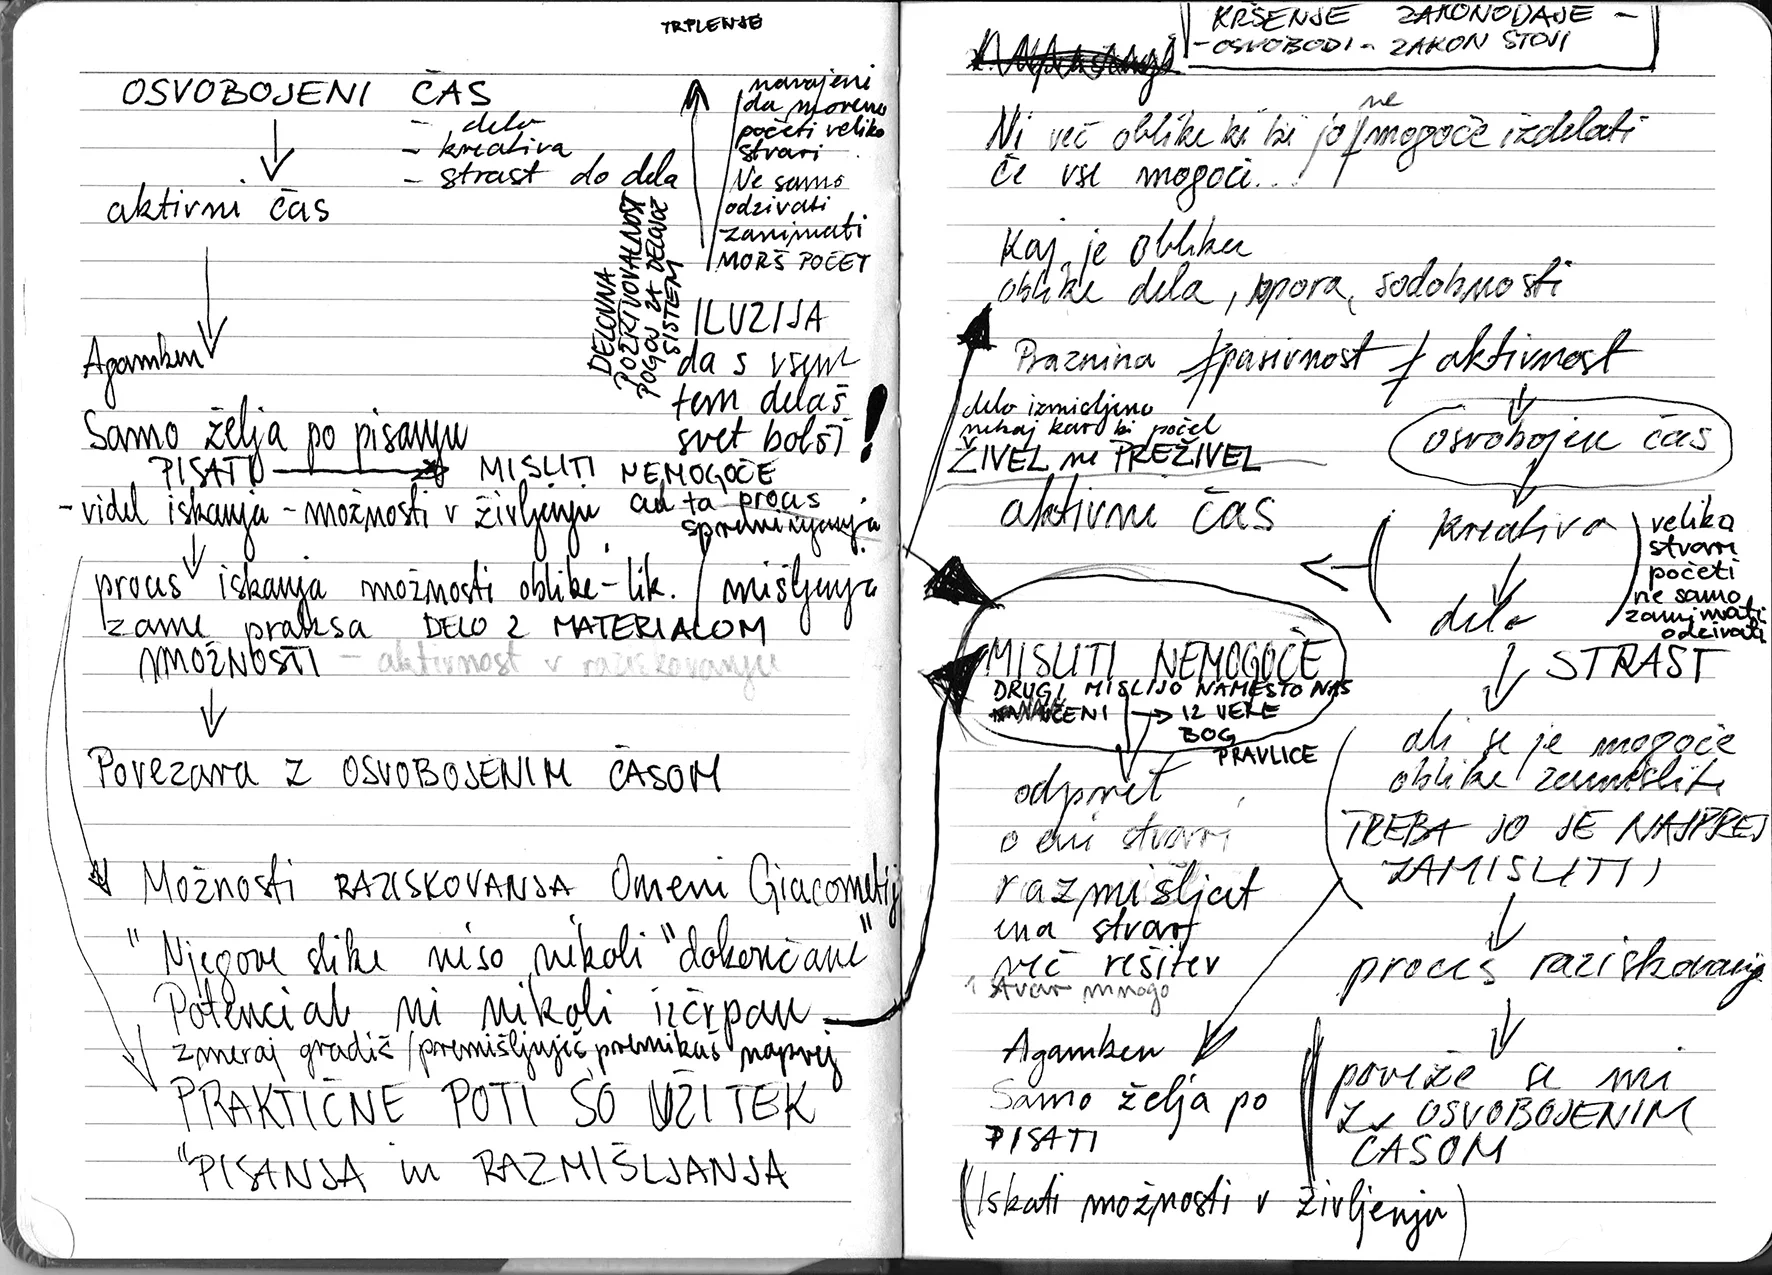 TRPLENJE
OSVOBOJENI ČAS
- delo
- kreativa
- strast do dela
aktivni čas
navajeni
da moremo
početi veliko
stvari
Ne samo
odzivati
zanimati
MORŠ POČET
DELOVNA
POŽRTVOVALNOST
POGOJ ZA DELUJOČ
SISTEM
ILUZIJA
da s vsem
tem delaš
svet bolši !
Agamben
Samo želja po pisanju
PISATI MISLITI NEMOGOČE
- videl iskanja - možnosti v življenju
ta proces
spreminjanja
mišljenja
proces iskanja možnosti oblike-lik.
zame praksa DELO Z MATERIALOM
MOŽNOSTI - aktivnost v raziskovanju
Povezava z OSVOBOJENIM ČASOM
Možnosti RAZISKOVANJA Omeni Giacometij
"Njegove slike niso nikoli "dokončane"
Potencial ni nikoli izčrpan
zmeraj gradiš/premišljuješ premikaš naprej
PRAKTIČNE POTI SO UŽITEK
"PISANJA in RAZMIŠLJANJA
KRŠENJE ZAKONODAJE -
- OSVOBODI - ZAKON STOJI
Ni več oblike ki bi jo ne mogoče izdelati
če vse mogoči...
Kaj je oblika
oblike dela, upora, sodobnosti
Praznina ≠ pasivnost ≠ aktivnost
delo izmišljeno
nekaj kar bi počel
ŽIVEL ne PREŽIVEL
osvobojen čas
aktivni čas
kreativa
delo
velika
stvari
početi
ne samo
zanimati
odzivati
STRAST
MISLITI NEMOGOČE
DRUGI MISLIJO NAMESTO NAS
UČENI → IZ VERE
BOG
PRAVLICE
ali se je mogoče
oblike zamisliti
TREBA JO JE NAJPREJ
ZAMISLITI
odpret
o eni stvari
razmišljat
ena stvar
več rešitev
1 stvar mnogo
proces raziskovanja
Agamben
Samo želja po
PISATI
poveže se mi
z OSVOBOJENIM
ČASOM
(Iskati možnosti v življenju)